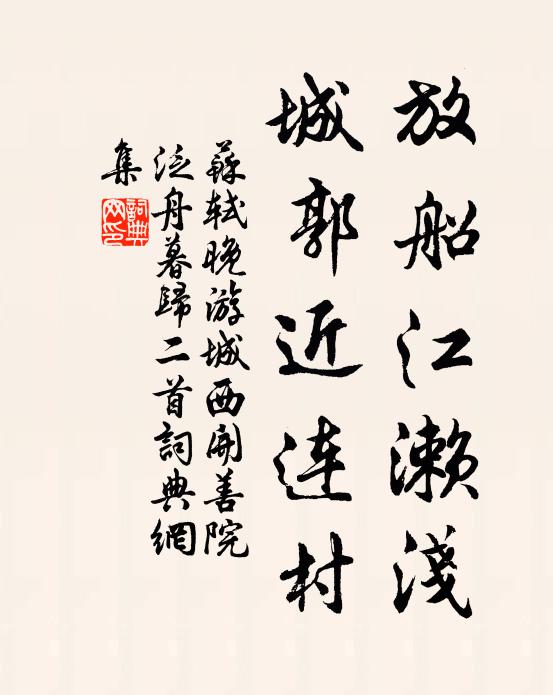 放船江濑淺
城郭近连村
蘇轼晚游城西開善院
泛舟暮歸二首詞典網
集
詞典
网印